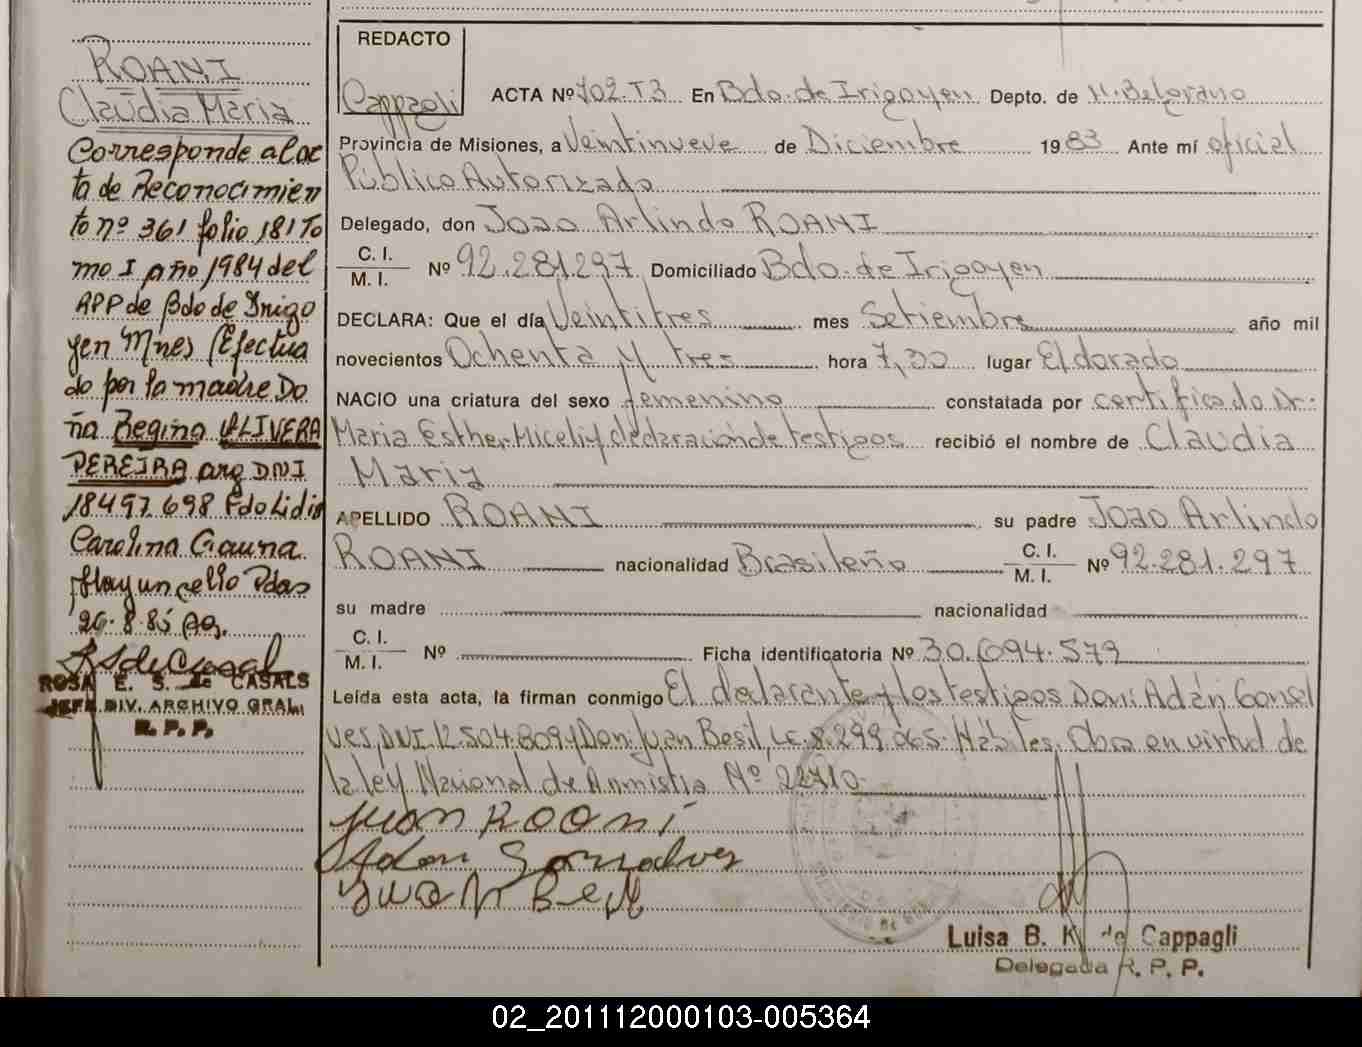 ROANI
Claudia Maria
Corresponde al ac
ta de Reconocimien
to nº 361 folio 181 To
mo I año 1984 del
RPP de Bdo de Irigo
yen Mnes Efectua
do por la madre Do
ña Regina OLIVERA
PEREIRA arg DNI
18497.698 Fdo Lidia
Carolina Gauna
Hay un sello Pdas
26.8.85
ROSA E. S. de CASALS
JEFE DIV. ARCHIVO GRAL.
R. P. P.
REDACTO
Cappagli
ACTA Nº 702.T3 En Bdo. de Irigoyen Depto. de M. Belgrano
Provincia de Misiones, a Veintinueve de Diciembre 1983 Ante mí oficial
Público Autorizado
Delegado, don Joao Arlindo ROANI
C. I.
M. I. Nº 92.281.297 Domiciliado Bdo. de Irigoyen
DECLARA: Que el día Veintitres mes Setiembre año mil
novecientos Ochenta y tres hora 7,00 lugar Eldorado
NACIO una criatura del sexo femenino constatada por certificado Dr:
Maria Esther Miceli y declaración de testigos recibió el nombre de Claudia
Maria
APELLIDO ROANI su padre Joao Arlindo
ROANI nacionalidad Brasileño C. I. M. I. Nº 92.281.297
su madre nacionalidad
C. I.
M. I. Nº Ficha identificatoria Nº 30.694.579
Leída esta acta, la firman conmigo El declarante y los testigos Don: Adán Gonsal
ves, DNI. 12.504.809 y Don: Juan Besil, LE 8.299.065. Hábiles. Obra en virtud de
la ley Nacional de Anmistia Nº 22710
Juan Rooni
Adan Gonzalves
Juan Besil
Luisa B. K. de Cappagli
Delegada R. P. P.
02_201112000103-005364